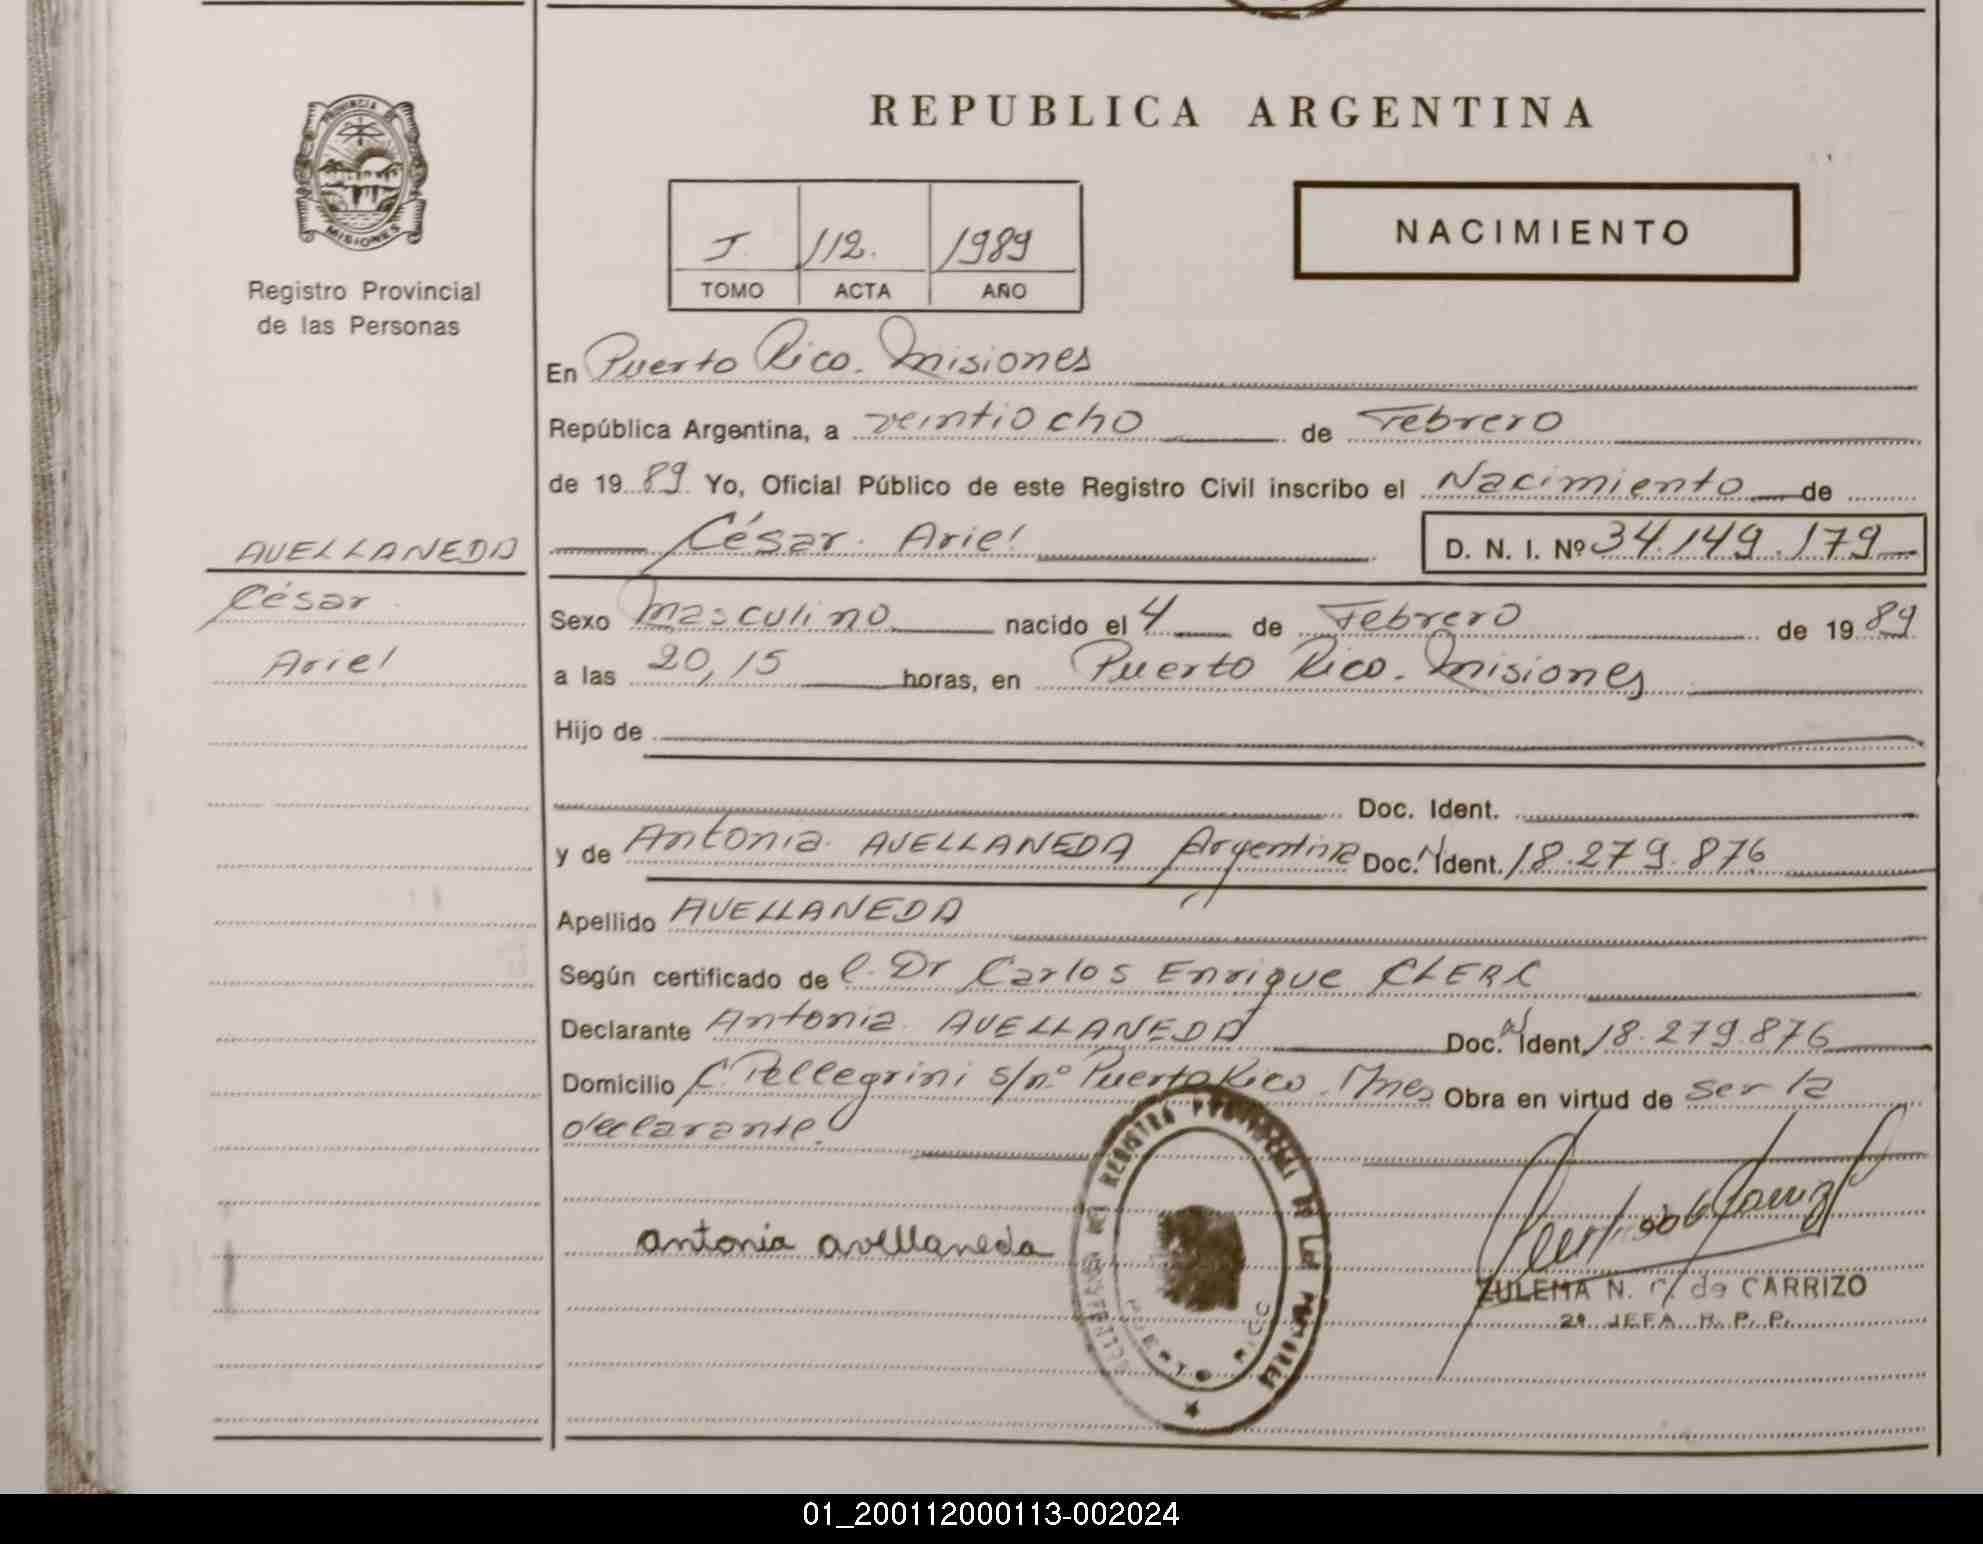 PROVINCIA DE
MISIONES
Registro Provincial
de las Personas
AVELLANEDA
César
Ariel
REPUBLICA ARGENTINA
NACIMIENTO
I. 112. 1989
TOMO ACTA AÑO
En Puerto Rico. Misiones
República Argentina, a veintiocho de Febrero
de 1989 Yo, Oficial Público de este Registro Civil inscribo el Nacimiento de
César Ariel D. N. I. Nº 34.149.179
Sexo Masculino nacido el 4 de Febrero de 1989
a las 20,15 horas, en Puerto Rico. Misiones
Hijo de
Doc. Ident.
y de Antonia AVELLANEDA Argentina Doc. N Ident. 18.279.876
Apellido AVELLANEDA
Según certificado de l. Dr Carlos Enrique CLERC
Declarante Antonia AVELLANEDA Doc. N Ident. 18.279.876
Domicilio C. Pellegrini s/nº Puerto Rico. Mnes Obra en virtud de ser la
declarante.
antonia avellaneda
REGISTRO PROVINCIAL DE LAS PERSONAS
PUERTO RICO
ZULEMA N. de CARRIZO
2ª JEFA R. P. P.
01_200112000113-002024